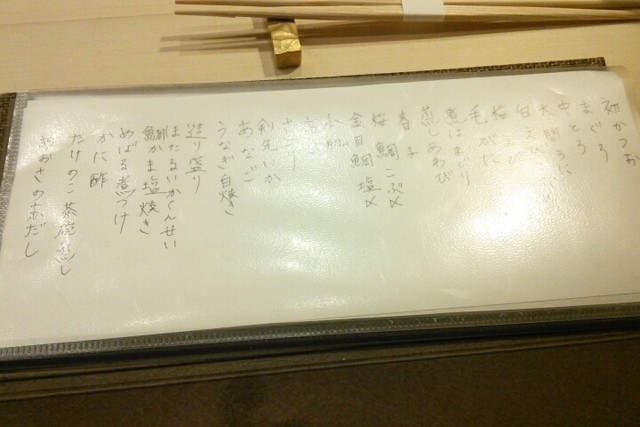 初かつお
まぐろ
中とろ
大間うに
白えび
桜
毛がに
煮はまぐり
蒸しあわび
春子
桜鯛こぶ〆
金目鯛塩〆
小肌
さより
剣先いか
あなご
うなぎ白焼き
造り盛り
ほたるいかくんせい
鰤かま塩焼き
めばる煮つけ
かに酢
たけのこ茶碗蒸し
あおさの赤だし